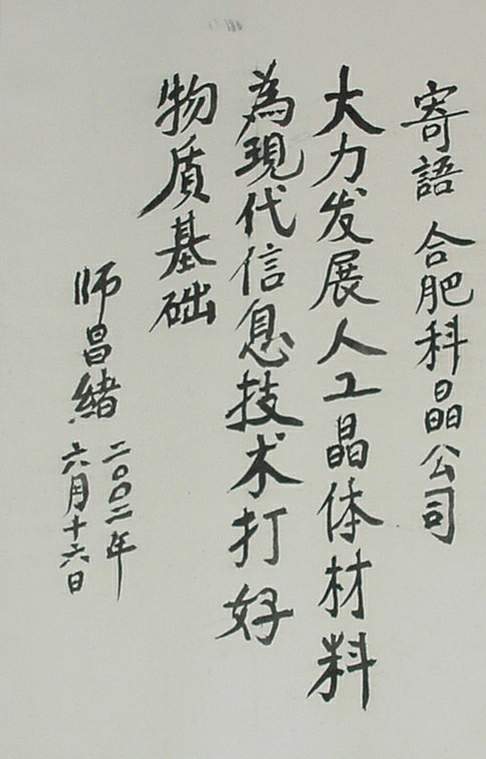 寄語 合肥科晶公司
大力发展人工晶体材料
為現代信息技术打好
物质基础
師昌緒
二〇〇二年
六月十六日